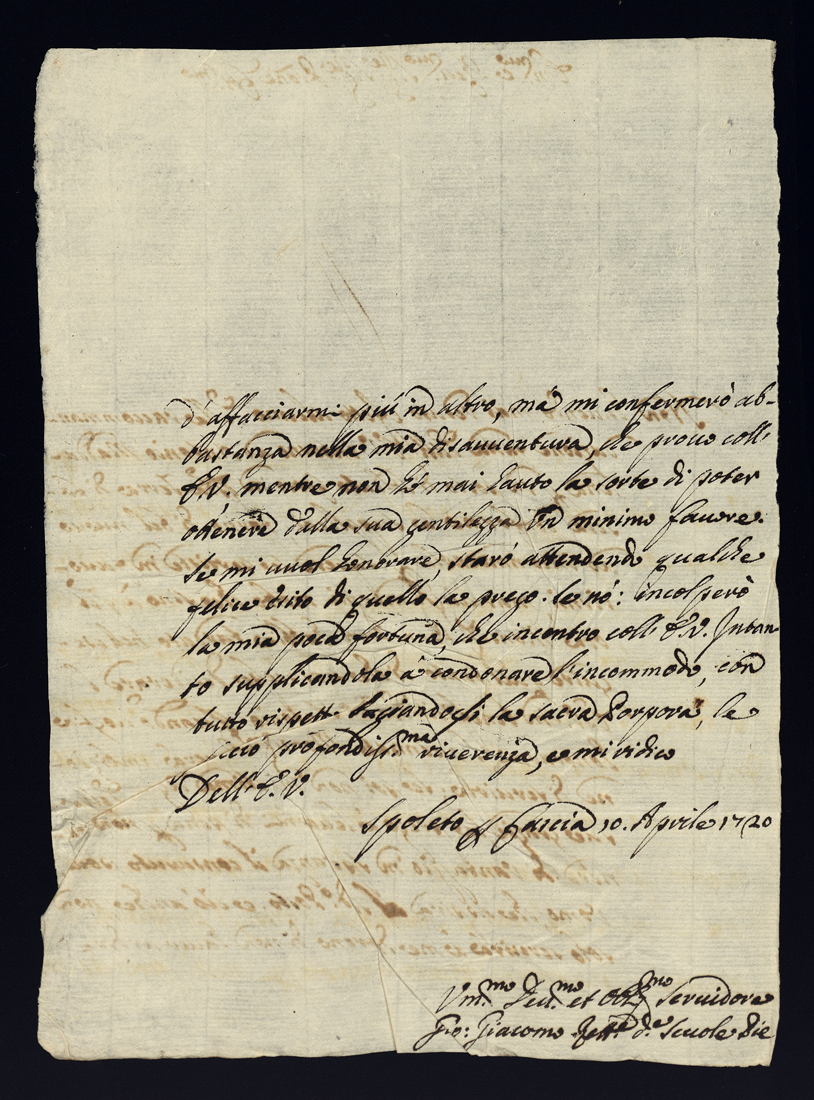 d'affacciarmi più in altro, mà mi confermerò ab-
bastanza nella mia disauventura, che prouo coll'
E.V. mentre non hò mai hauto la sorte di poter
ottenere dalla sua gentilezza un minimo fauore.
se mi vuol honorare, starò attendendo qualche
felice esito di quello la prego. se nò: incolperò
la mia poca fortuna, che incontro coll' E.V. Intan-
to supplicandola à condonare l'incommodo, con
tutto rispett baciandogli la sacra Porpora, le
fccio profondiss.ma riuerenza, e mi ridico
Dell' E.V.
Spoleto Cascia 10. Aprile 1720
Vm.mo Deu.mo et Obl.mo Seruidore
Gio: Giacomo Rett.e d.e Scuole Pie